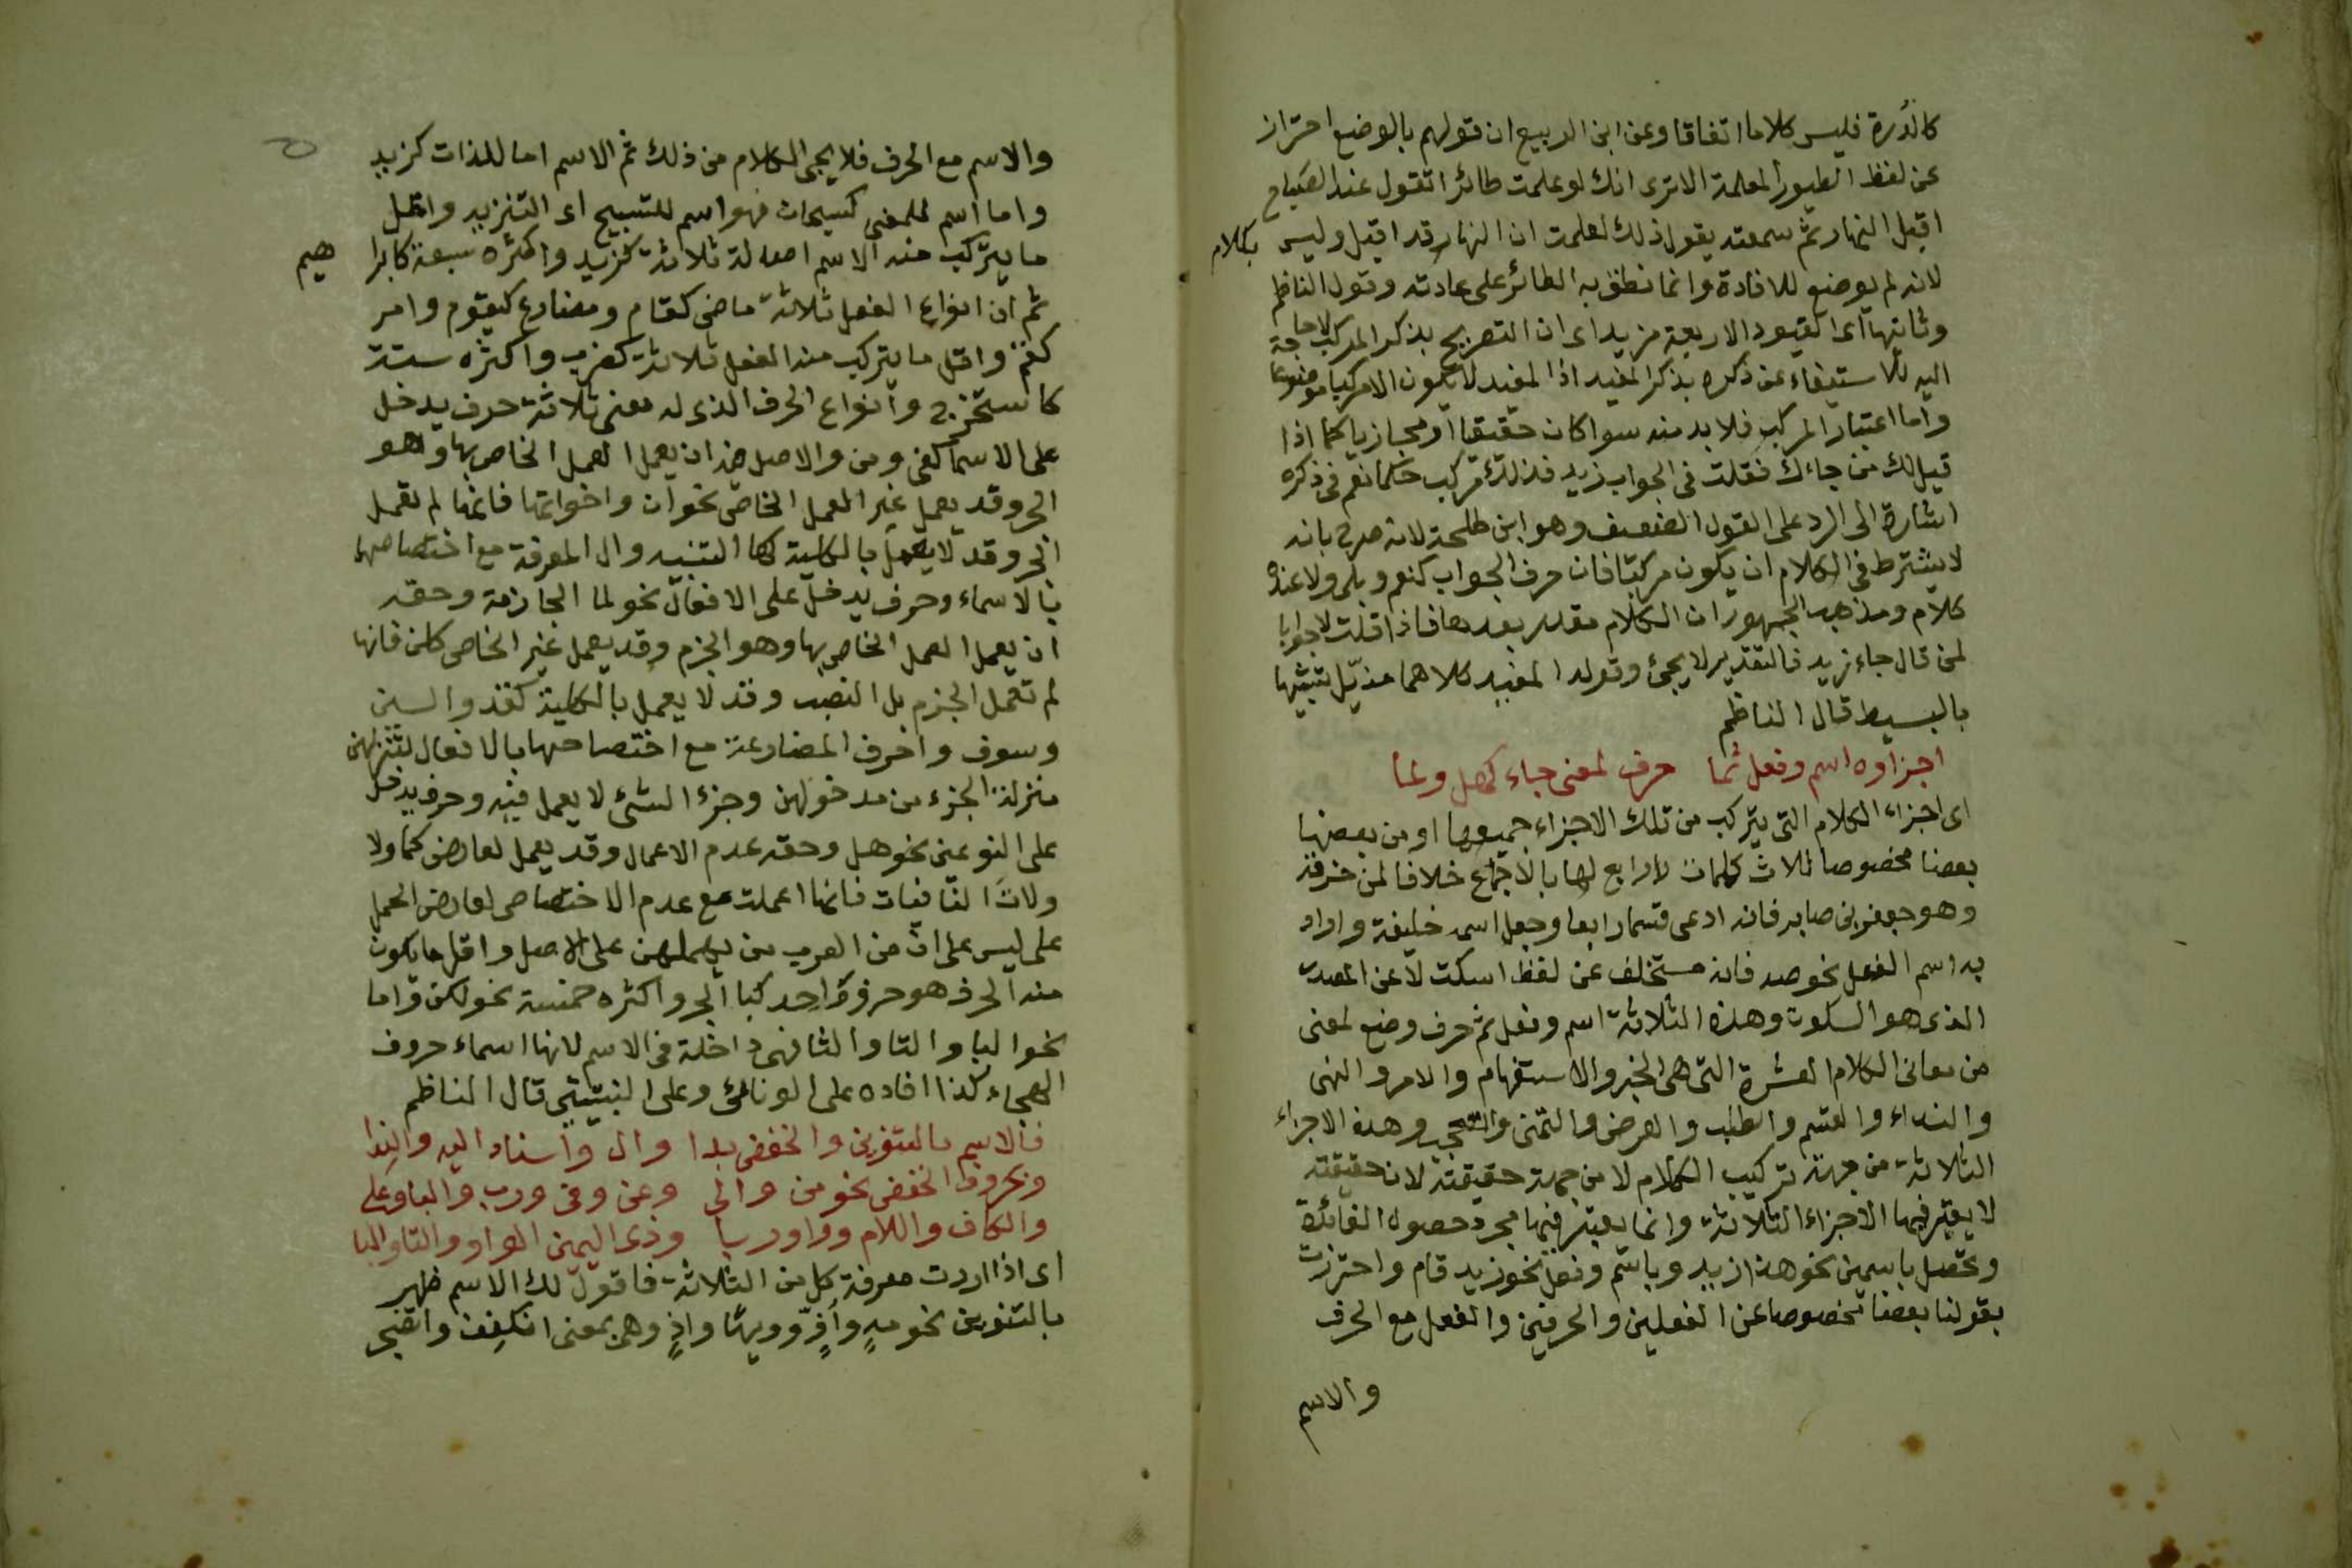 كالدُرة فليس كلاما اتفاقا وعن ابن الربيع ان قولهم بالوضع احتراز
عن لفظ الطيور المعلمة الاترى انك لو علمت طائرا تقول عند الصباح
اقبل النهار ثم سمعته يقول ذلك لعلمت ان النهار قد اقبل وليس بكلام
لانه لم يوضع للافادة وانما نطق به الطائر على عادته وقول الناظم
وثانيها اى القيود الاربعة مزيد اى ان التصريح بذكر المركب لا حاجة
اليه للاستيفاء عن ذكره بذكر المفيد اذ المفيد لا يكون الا مركبا موضوعا
واما اعتبار المركب فلا بد منه سوا كان حقيقيا او مجازيا كما اذا
قيل لك من جاءك فقلت فى الجواب زيد فذلك مركب حكما نعم فى ذكره
اشارة الى الرد على القول الضعيف وهو ابن طلحة لانه صرح بانه
لا يشترط فى الكلام ان يكون مركبا فان حرف الجواب كنعم وبلى ولا عنده
كلام ومذهب الجمهور ان الكلام مقدر بعدها فاذا قلت لا جوابا
لمن قال جاء زيد فالتقدير لا يجئ وقوله المفيد كلاهما مذيّل
بالبسيط قال الناظم
اجزاوه اسم وفعل ثما حرف لمعنى جاء كهل ولما
اى اجزاء الكلام التى يتركب من تلك الاجزاء جميعها او من بعضها
بعضا مخصوصا ثلاث كلمات لا رابع لها بالاجماع خلافا لمن خرقه
وهو جعفر بن صابر فانه ادعى قسما رابعا وجعل اسمه خليفة واراد
به اسم الفعل نحو صه فانه مستخلف عن لفظ اسكت لا عن المصدر
الذى هو السكوت وهذه الثلاثة اسم وفعل ثم حرف وضع لمعنى
من معانى الكلام العشرة التى هى الخبر والاستفهام والامر والنهى
والنداء والقسم والطلب والعرض والتمنى والتعجب وهذه الاجزاء
الثلاثة من جهة تركيب الكلام لا من جهة حقيقته لان حقيقته
لا يعتبر فيها الاجزاء الثلاثة وانما يعتبر فيها مجرد حصول الفائدة
وتحصل باسمين نحو هذا زيد وباسم وفعل نحو زيد قام واحترزت
بقولنا بعضا مخصوصا عن الفعلين والحرفين والفعل مع الحرف
والاسم
والاسم مع الحرف فلا يجئ الكلام من ذلك ثم الاسم اما للذات كزيد
واما اسم للمعنى كسبحان فهو اسم للتسبيح اى التنزيه واقل
ما يتركب منه الاسم اصالة ثلاثة كزيد واكثره سبعة كابرا هيم
ثم ان انواع الفعل ثلاثة ماضى كقام ومضارع كيقوم وامر
كقم واقل ما يتركب منه الفعل ثلاثة كضرب واكثره ستة
كاستخرج وانواع الحرف الذى له معنى ثلاثة حرف يدخل
على الاسما كفى ومن والاصل فيه ان يعمل العمل الخاص بها وهو
الجر وقد يعمل غير العمل الخاص نحو ان واخواتها فانها لم تعمل
الجر وقد لا يعمل بالكلية كها التنبيه وال المعرفة مع اختصاصهما
بالاسماء وحرف يدخل على الافعال نحو لما الجازمة وحقه
ان يعمل العمل الخاص بها وهو الجزم وقد يعمل غير الخاص كلن فانها
لم تعمل الجزم بل النصب وقد لا يعمل بالكلية كقد والسين
وسوف واحرف المضارعة مع اختصاصها بالافعال لتنزلهن
منزلة الجزء من مدخولهن وجزء الشئ لا يعمل فيه وحرف يدخل
على النوعين نحو هل وحقه عدم الاعمال وقد يعمل لعارض كما ولا
ولاتَ النافيات فانها اعملت مع عدم الاختصاص لعارض الحمل
على ليس على انّ من العرب من يهملهن على الاصل واقل ما يكون
منه الحرف هو حرف واحد كبا الجر واكثره خمسة نحو لكن واما
نحو البا والتا والثا فهى داخلة فى الاسم لانها اسماء حروف
الهجاء كذا افاده على الونائى وعلى النبتيتى قال الناظم
فالاسم بالتنوين والخفض بدا وال واسناد اليه والندا
وبحروف الخفض نحو من والى وعن وفى ورب والبا وعلى
والكاف واللام وواو ربا وذى اليمين الواو والتا والبا
اى اذا اردت معرفة كل من الثلاثة فاقول لك الاسم ظهر
بالتنوين نحو مهٍ وأفٍّ وويهًا واذٍ وهى بمعنى انكفف